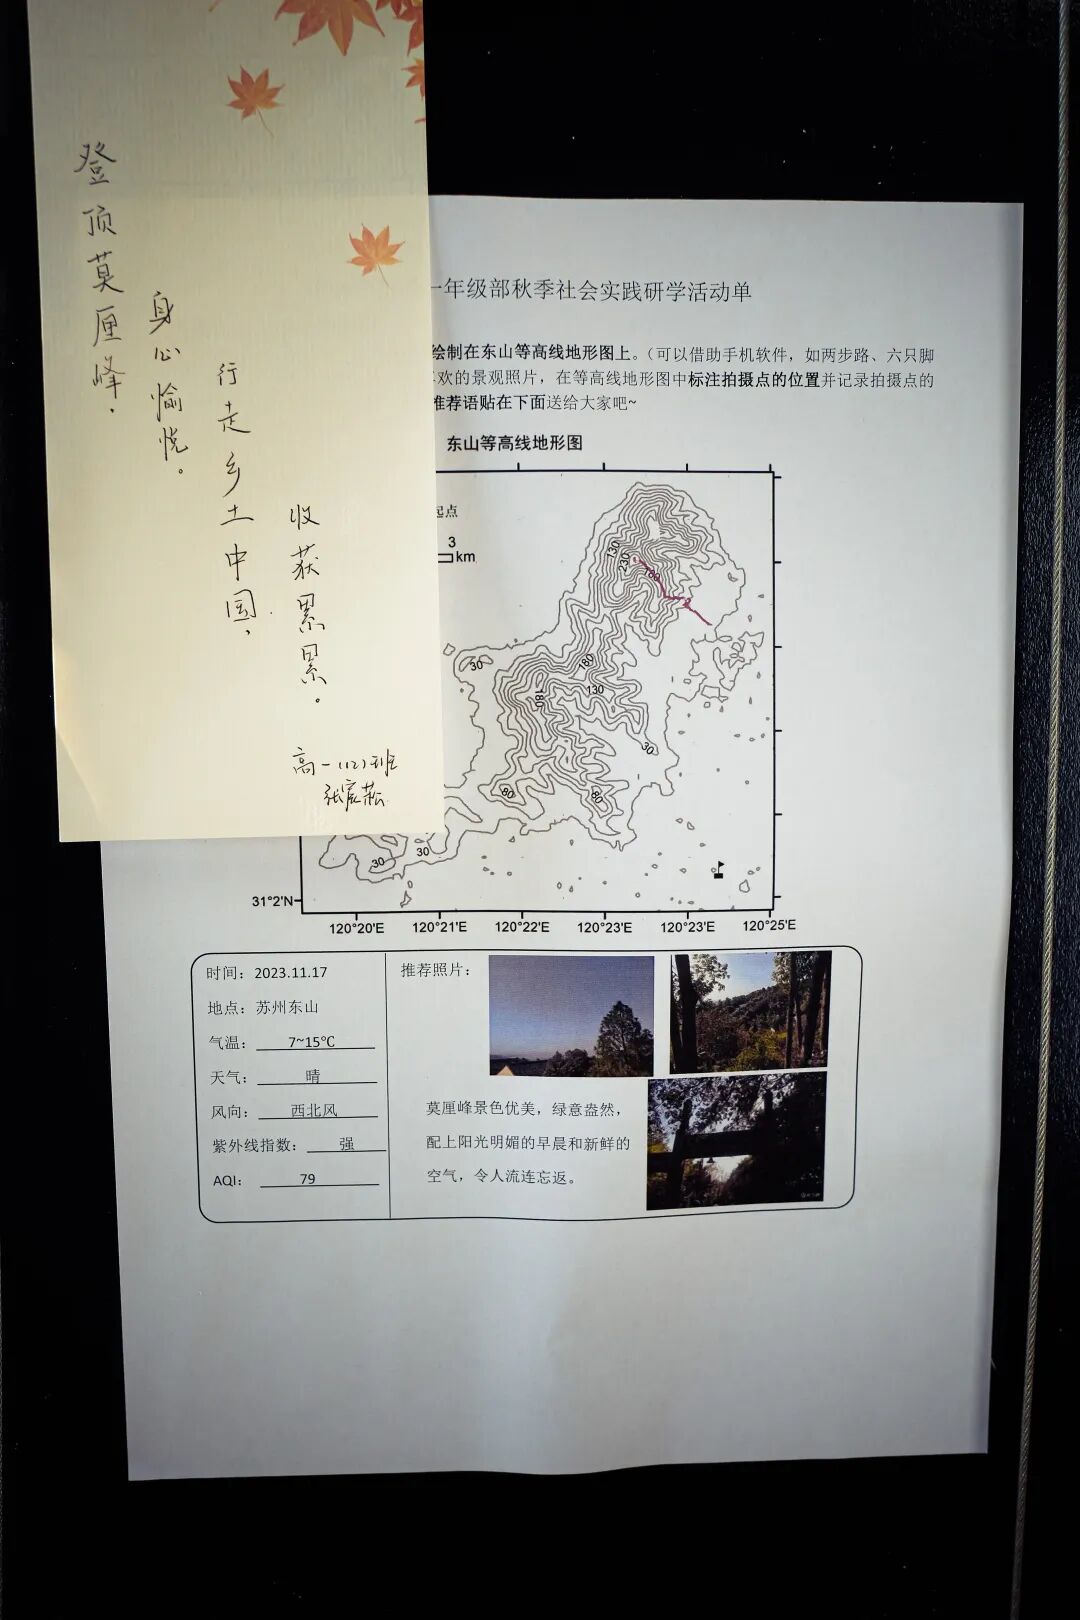 登顶莫厘峰，
身心愉悦。
行走乡土中国，
收获累累。
高一（12）班
张宸菘
一年级部秋季社会实践研学活动单
绘制在东山等高线地形图上。（可以借助手机软件，如两步路、六只脚
喜欢的景观照片，在等高线地形图中标注拍摄点的位置并记录拍摄点的
推荐语贴在下面送给大家吧~
东山等高线地形图
起点
3
km
130
230
180
30
180
180
130
30
80
80
30
30
31°2'N
120°20'E 120°21'E 120°22'E 120°23'E 120°23'E 120°25'E
时间：2023.11.17
地点：苏州东山
气温：7~15℃
天气：晴
风向：西北风
紫外线指数：强
AQI：79
推荐照片：
莫厘峰景色优美，绿意盎然，
配上阳光明媚的早晨和新鲜的
空气，令人流连忘返。